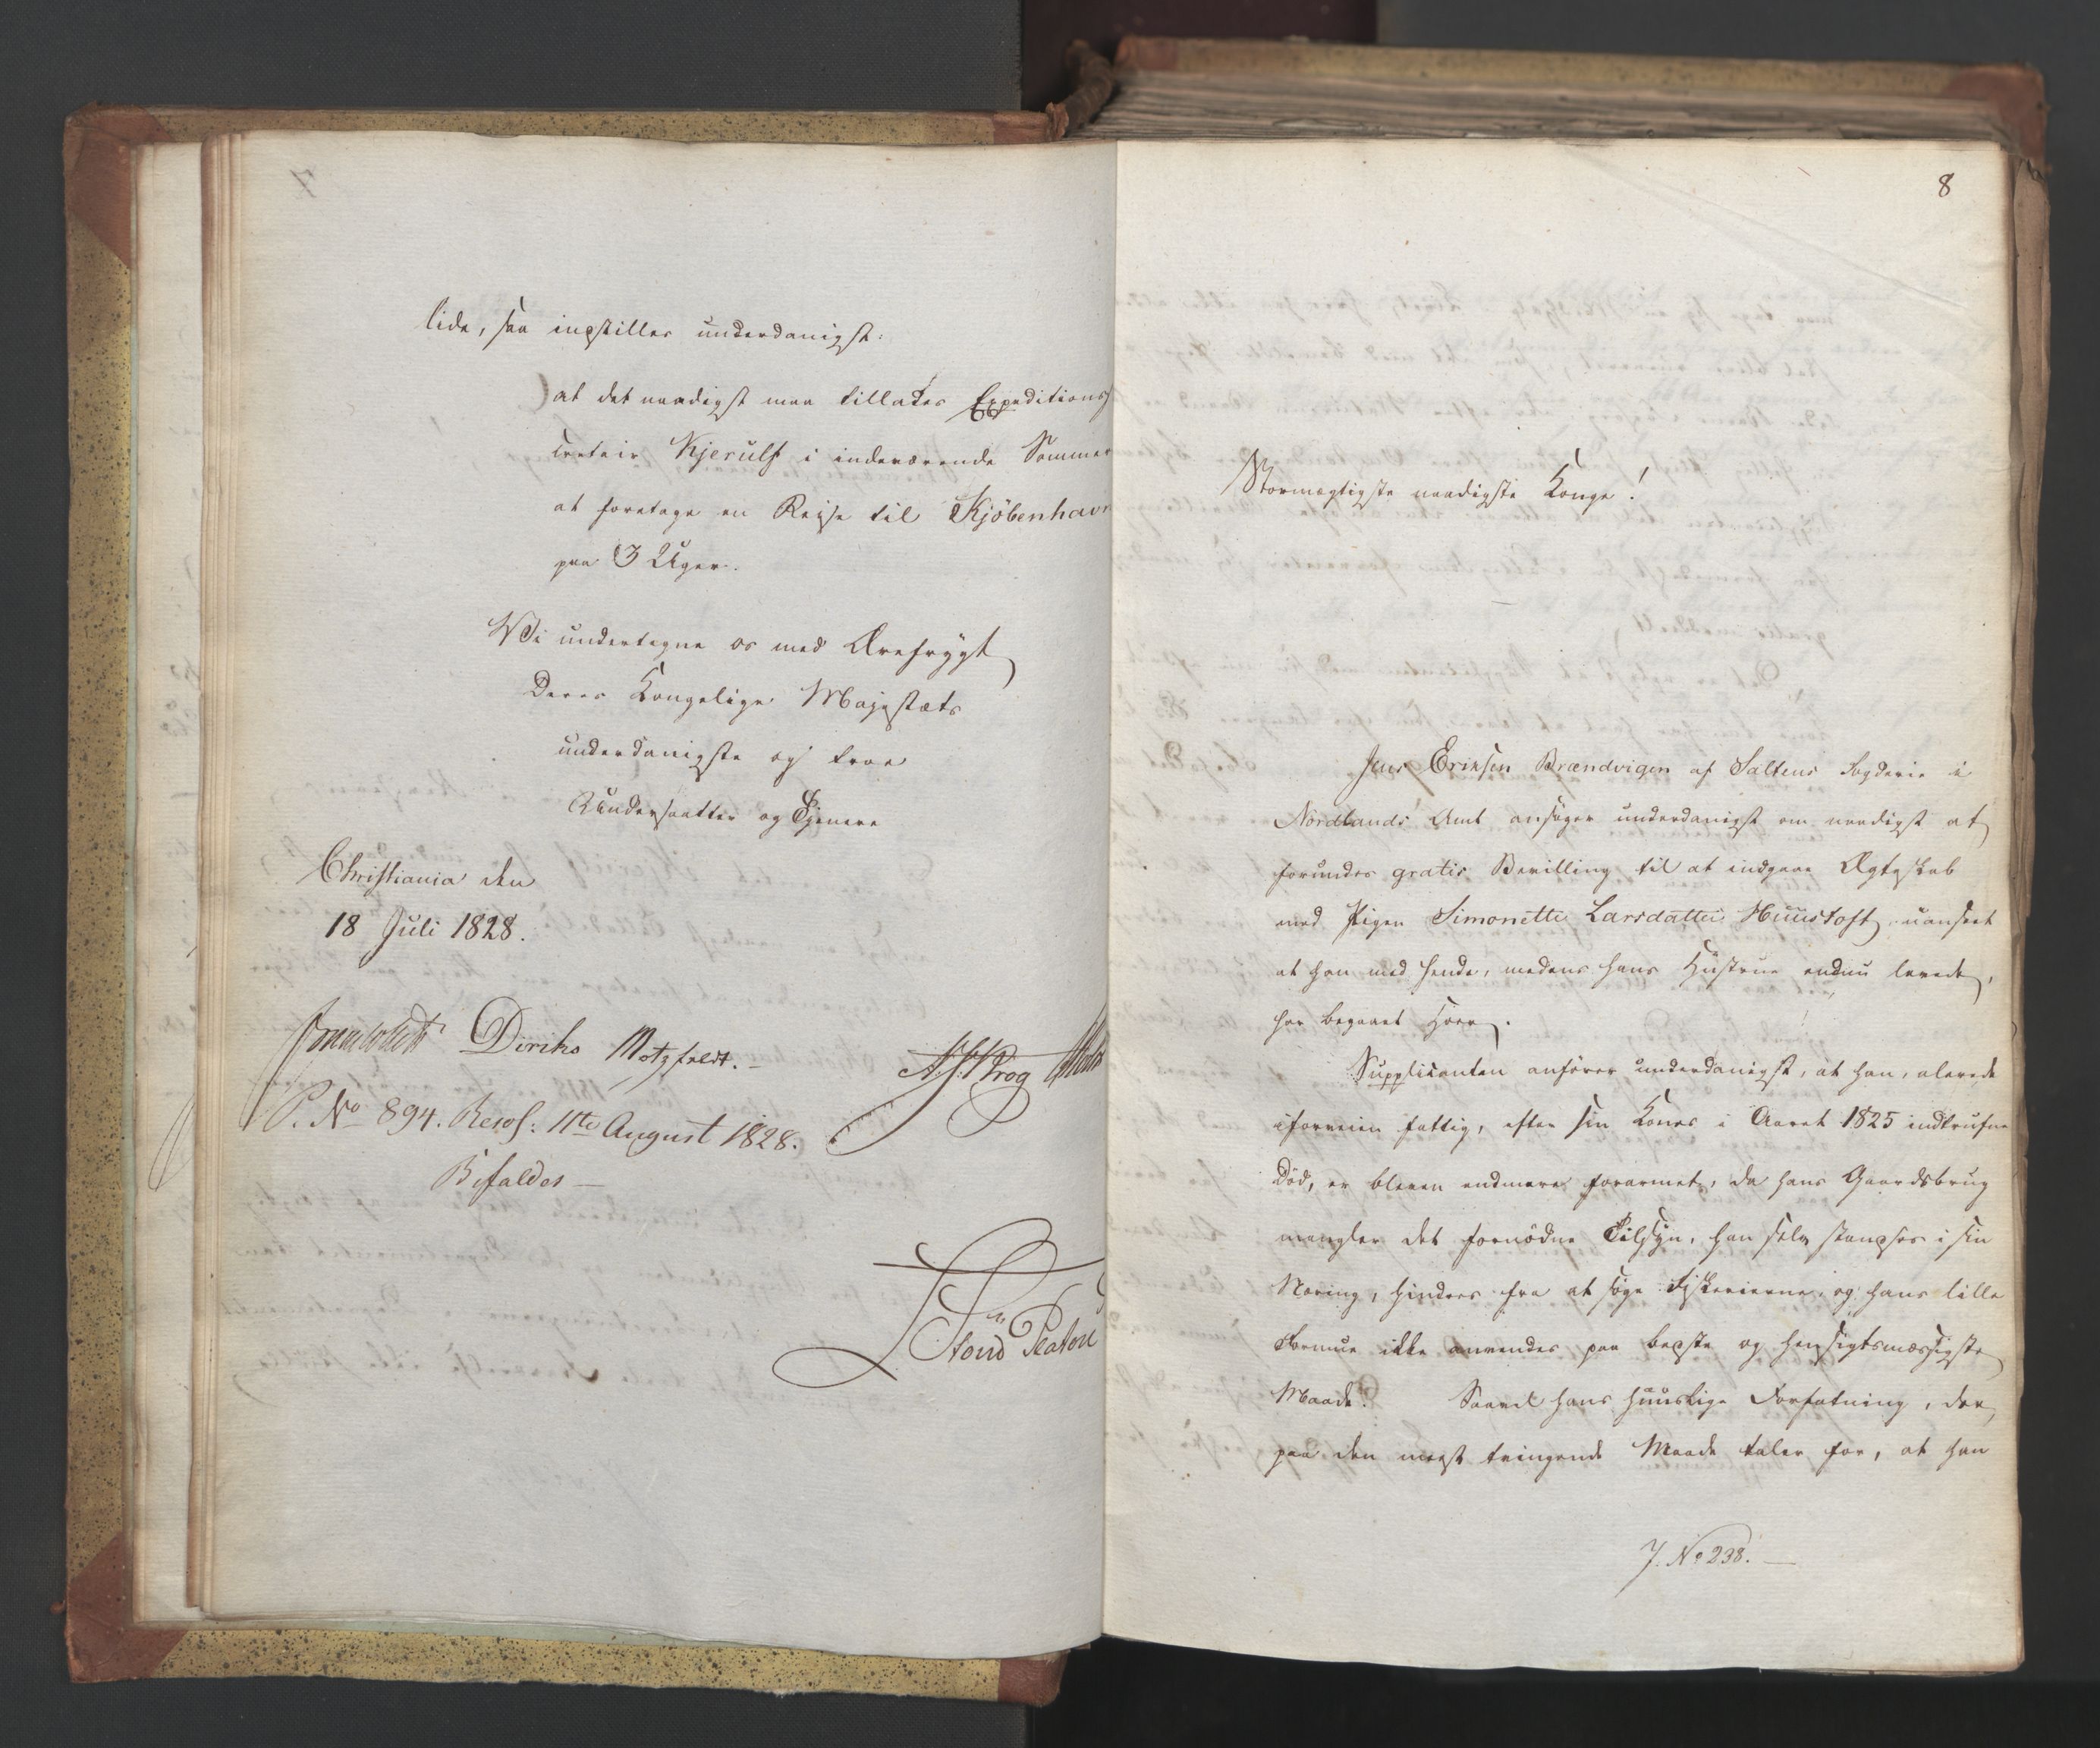 lide, saa indstilles underdanigst:
at det naadigst maa tillades Expeditions
cretair Kjerulf i indeværende Sommer
at foretage en Reise til Kjöbenhavn
paa 3 Uger.
Vi undertegne os med Ærefrygt
Deres Kongelige Majestæts
underdanigste og troe
Undersaatter og Tjenere
Christiania den
18 Juli 1828.
Diriks Motzfeldt. Krog
P. No 894. Resol: 11te August 1828.
Bifaldes
8
Stormægtigste naadigste Konge!
Jens Eriksen Brændvigen af Saltens Fogderie i
Nordlands Amt ansøger underdanigst om naadigst at
forundes gratis Bevilling til at indgaae Ægteskab
med Pigen Simonette Larsdatter Huustoft uanseet
at han med hende, medens hans Hustrue endnu levede,
har begaaet Hoer.
Supplicanten anförer underdanigst, at han, alerede
iforveien fattig, efter sin Kones i Aaret 1825 indtrufne
Död, er bleven endmere forarmet, da hans Gaardsbrug
mangler det fornödne Tilsyn, han selv standses i sin
Næring, hindres fra at söge Fiskerierne, og hans lille
Formue ikke anvendes paa bedste og hensigtsmæssigste
Maade. Saavel hans huuslige Forfatning, der
paa den meest tvingende Maade taler for, at han
J. No 238.